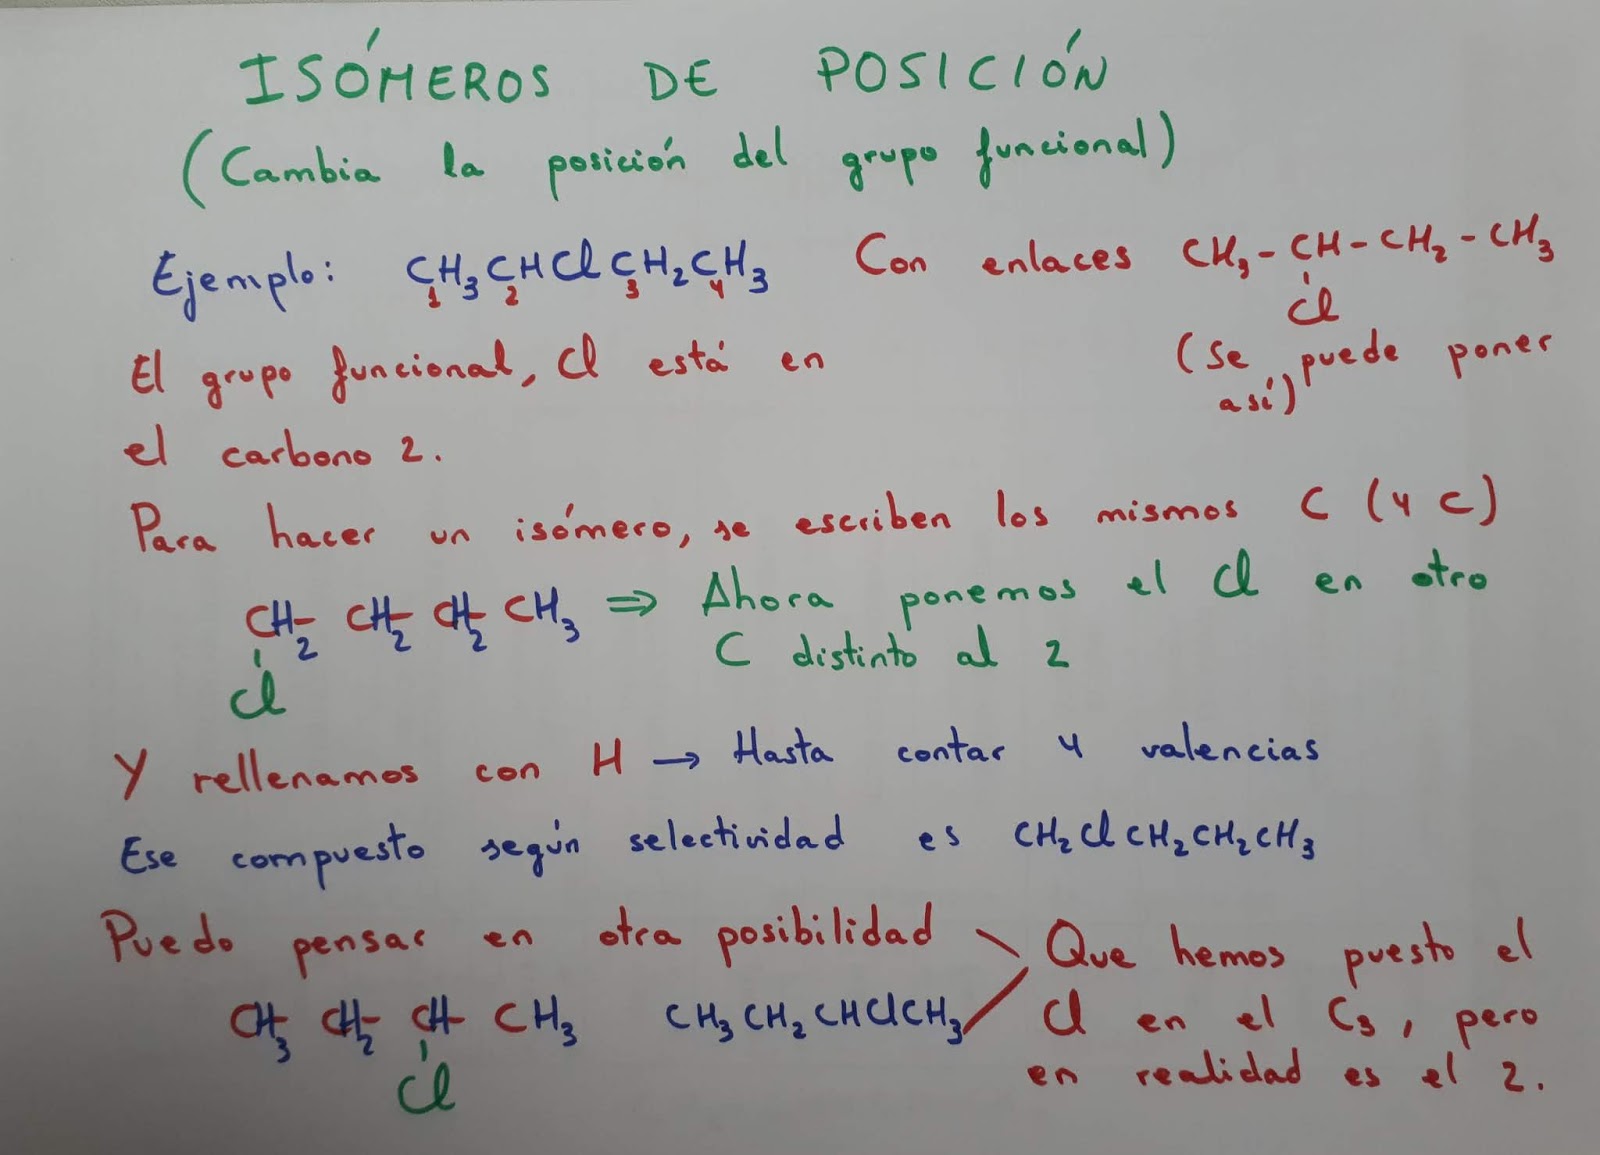 ISÓMEROS DE POSICIÓN
(Cambia la posición del grupo funcional)
Ejemplo: CH₃CHClCH₂CH₃ Con enlaces CH₃-CH-CH₂-CH₃
1 2 3 4
Cl
El grupo funcional, Cl está en
(Se puede poner
así)
el carbono 2.
Para hacer un isómero, se escriben los mismos C (4 C)
CH₂- CH₂- CH₂- CH₃ ⇒ Ahora ponemos el Cl en otro
Cl
C distinto al 2
Y rellenamos con H → Hasta contar 4 valencias
Ese compuesto según selectividad es CH₂ClCH₂CH₂CH₃
Puedo pensar en otra posibilidad
CH₃- CH₂- CH- CH₃ CH₃CH₂CHClCH₃
Cl
Que hemos puesto el
Cl en el C₃, pero
en realidad es el 2.